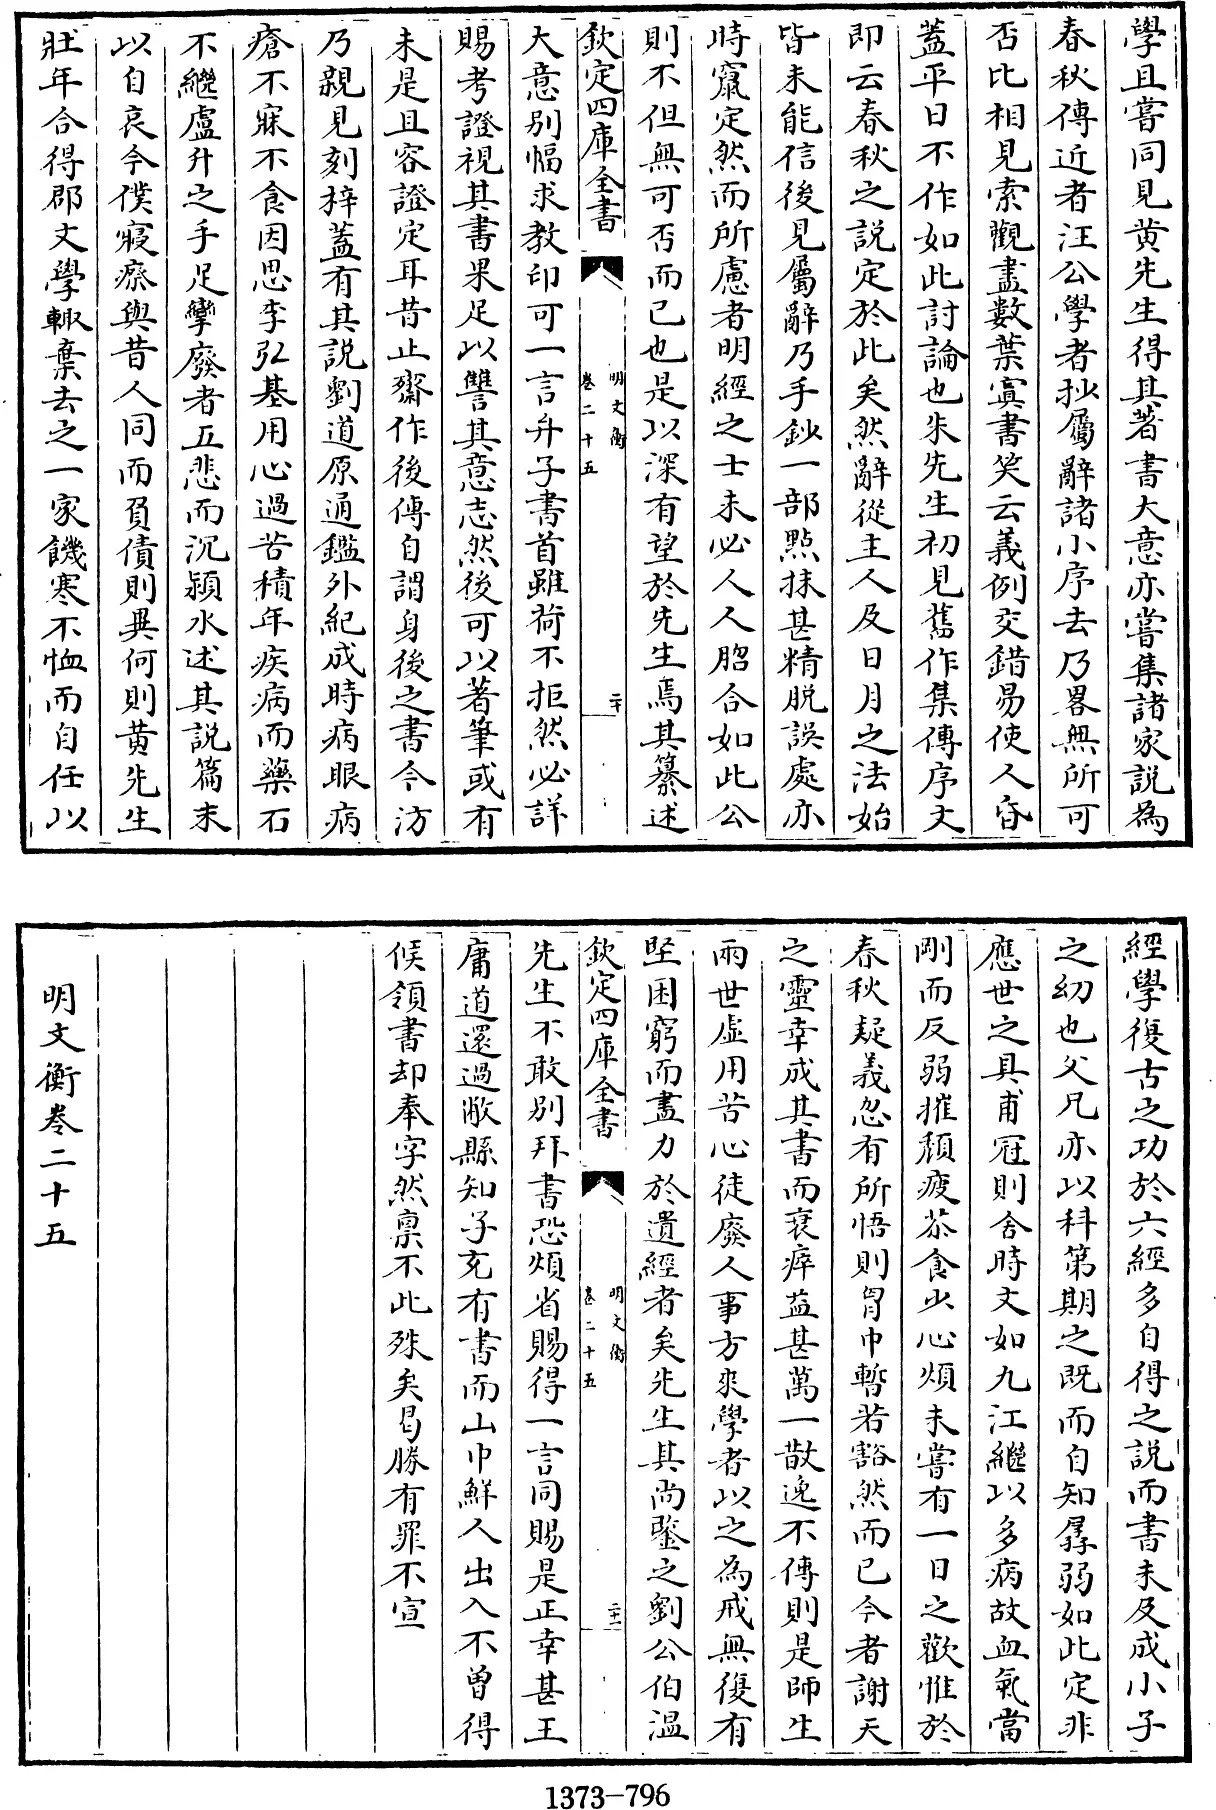 學且嘗同見黄先生得其著書大意亦嘗集諸家説為
春秋傳近者汪公學者抄屬辭諸小序去乃畧無所可
否比相見索觀盡數葉寘書笑云義例交錯易使人昏
蓋平日不作如此討論也朱先生初見舊作集傳序文
即云春秋之説定於此矣然辭從主人及日月之法始
皆未能信後見屬辭乃手鈔一部㸃抹甚精脱誤處亦
時竄定然而所慮者明經之士未必人人脗合如此公
則不但無可否而已也是以深有望於先生焉其纂述
欽定四庫全書
明文衡
卷二十五
二十
大意别幅求教印可一言弁子書首雖荷不拒然必詳
賜考證視其書果足以讐其意志然後可以著筆或有
未是且容證定耳昔止齋作後傳自謂身後之書今汸
乃親見刻梓蓋有其説劉道原通鑑外紀成時病眼病
瘡不寐不食因思李弘基用心過苦積年疾病而藥石
不繼盧升之手足攣廢者五悲而沉潁水述其説篇末
以自哀今僕寢瘵與昔人同而負債則異何則黄先生
壯年合得郡文學輙棄去之一家饑寒不恤而自任以
經學復古之功於六經多自得之説而書未及成小子
之幼也父兄亦以科第期之既而自知孱弱如此定非
應世之具甫冠則舍時文如九江繼以多病故血氣當
剛而反弱摧頽疲苶食少心煩未嘗有一日之歡惟於
春秋疑義忽有所悟則胷中暫若豁然而已今者謝天
之靈幸成其書而衰瘁益甚萬一散逸不傳則是師生
兩世虛用苦心徒廢人事方來學者以之為戒無復有
堅困窮而盡力於遺經者矣先生其尚鑒之劉公伯温
欽定四庫全書
明文衡
卷二十五
二十一
先生不敢别拜書恐煩省賜得一言同賜是正幸甚王
庸道還過敝縣知子充有書而山中鮮人出入不曾得
候領書却奉字然禀不此殊矣曷勝有罪不宣
明文衡卷二十五
1373-796